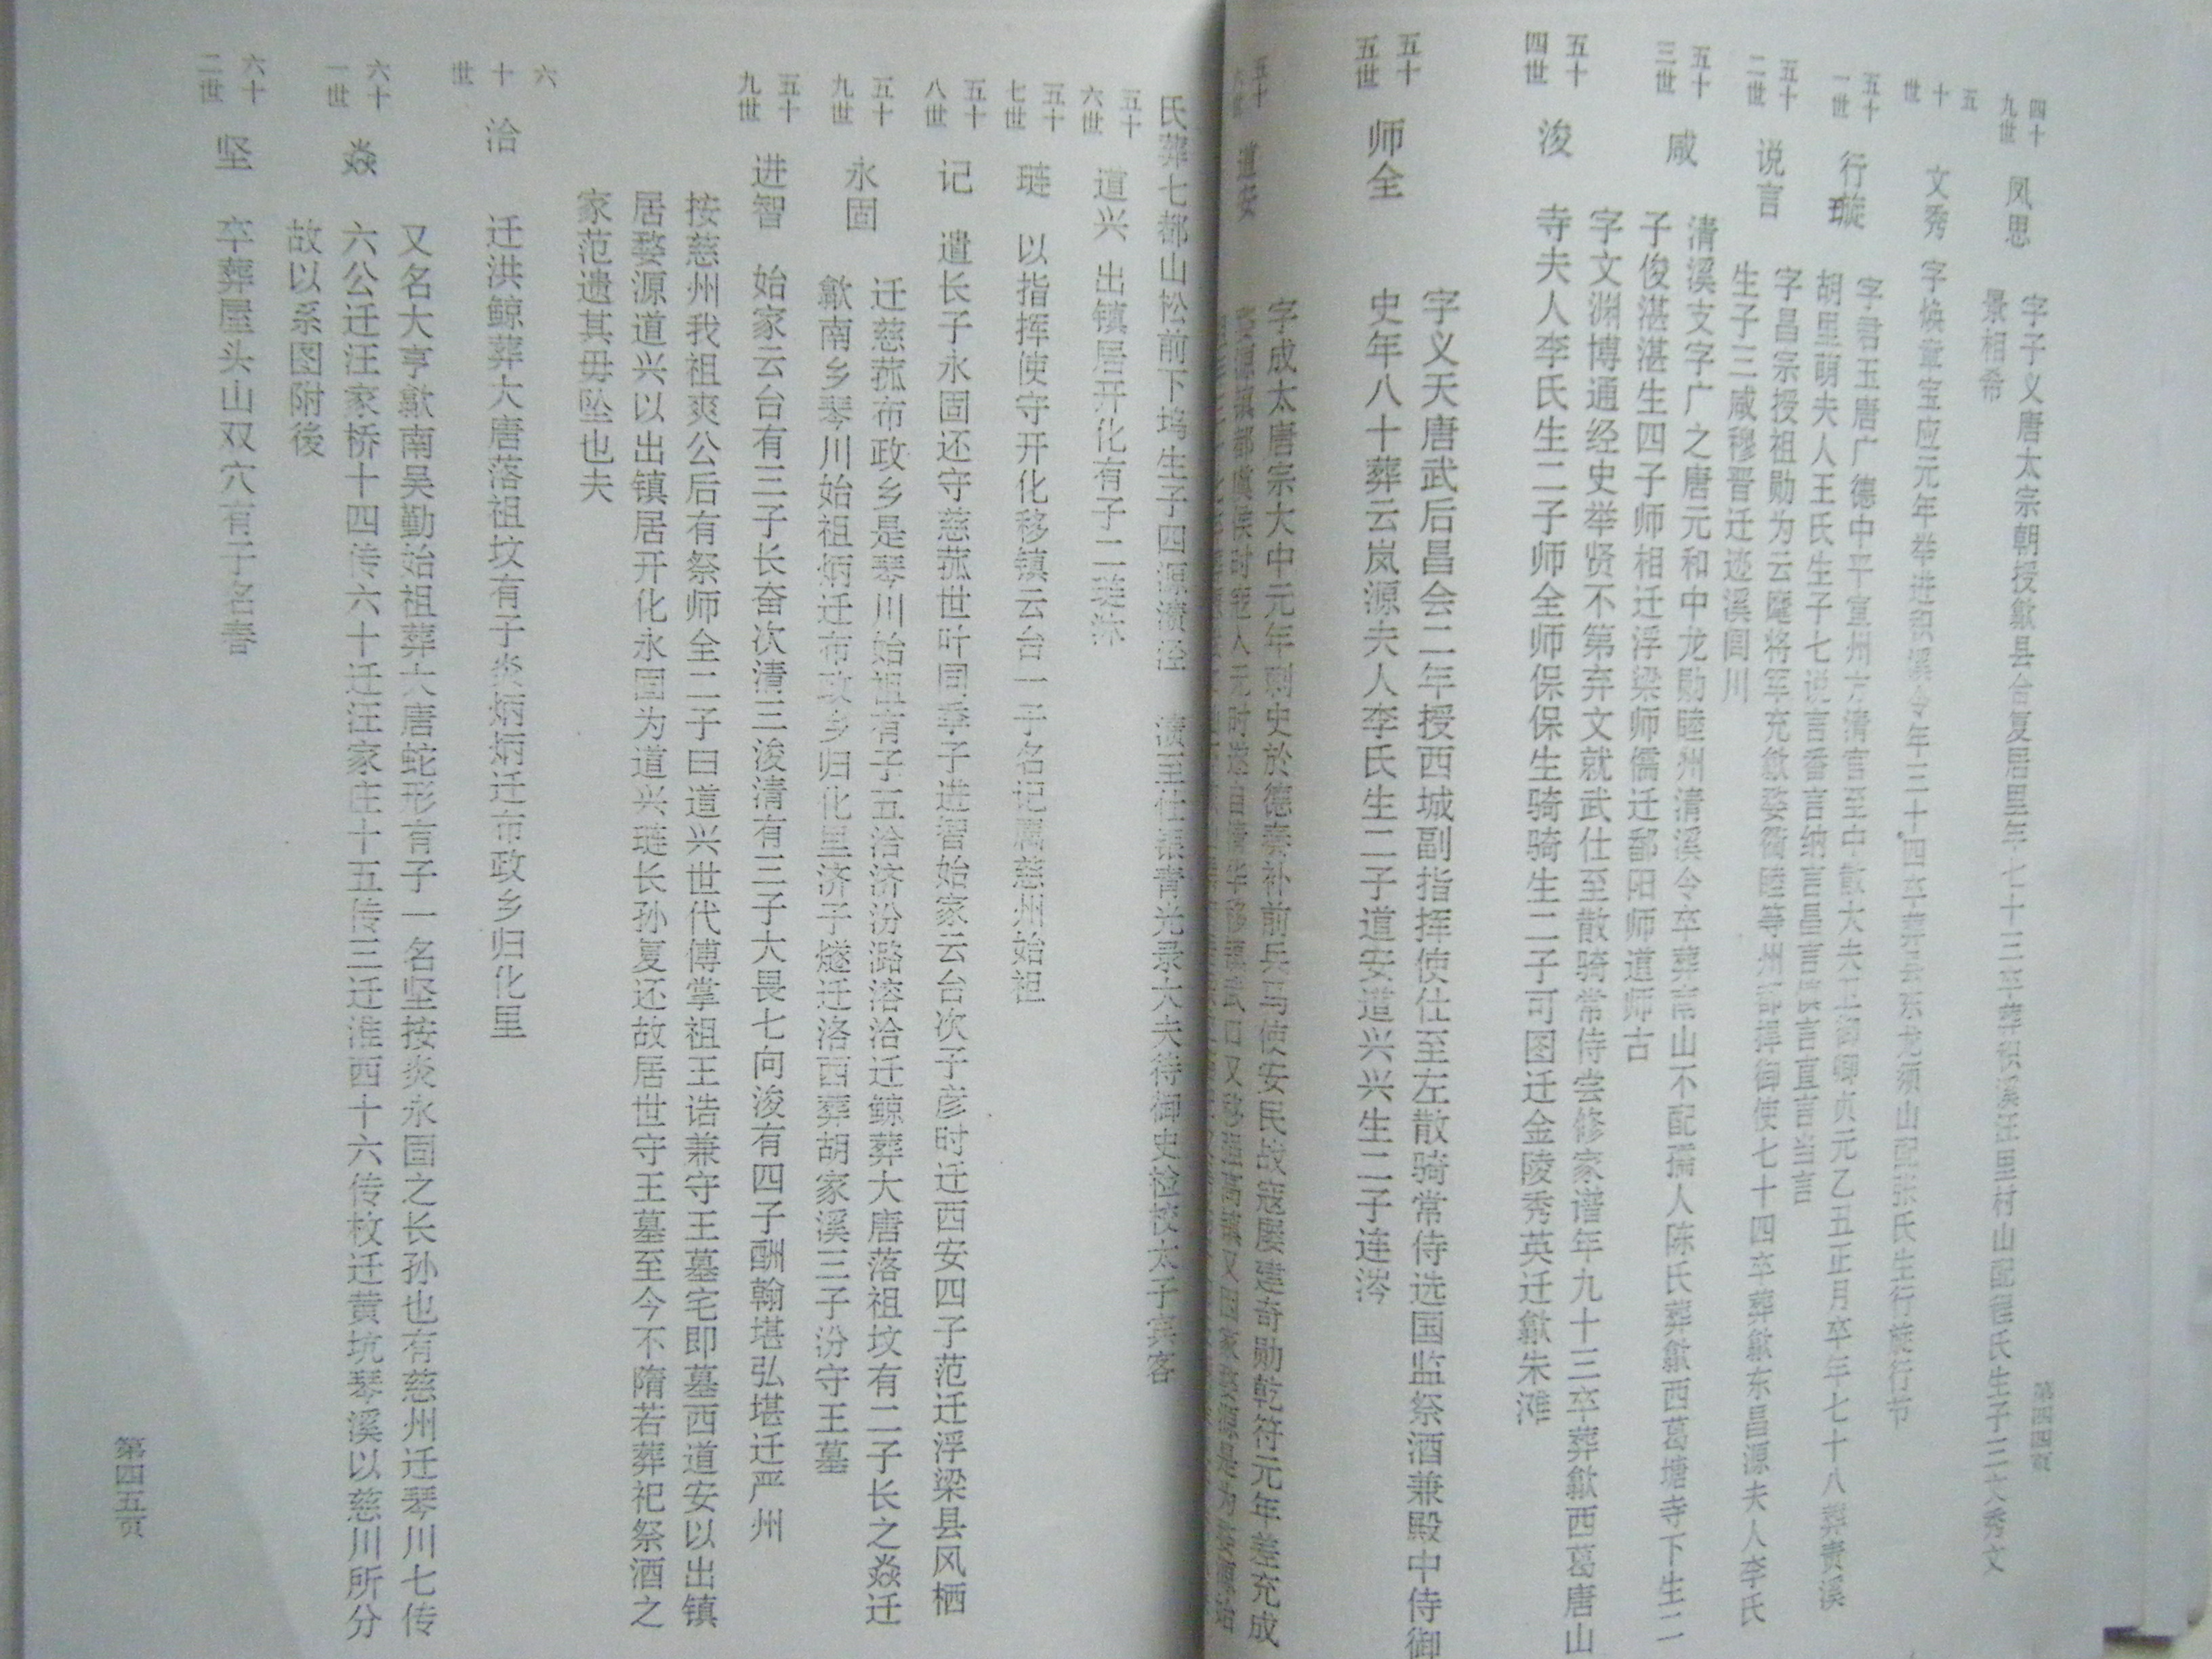 第四四页
四十九世
凤思
字子义唐太宗朝授歙县令复居里年七十三卒葬积溪汪里村山配程氏生子三文秀文
景相希
五十世
文秀
字焕章宝应元年举进积溪令年三十四卒葬县东龙须山配张氏生行旋行节
五十一世
行璇
字君玉唐广德中平宣州方清官至中散大夫卫卿贞元乙丑正月卒年七十八葬贵溪
胡里萌夫人王氏生子七说言香言纳言昌言直言当言
五十二世
说言
字昌宗授祖勋为云麾将军充歙婺衢睦等州御使七十四卒葬歙东昌源夫人李氏
生子三咸穆晋迁迹溪闾川
五十三世
咸
清溪支字广之唐元和中龙勋睦州清溪令卒葬南山不配孺人陈氏葬歙西葛塘寺下生二
子俊湛湛生四子师相迁浮梁师儒迁鄱阳师道师古
五十四世
浚
字文渊博通经史举贤不第弃文就武仕至散骑常侍尝修家谱年九十三卒葬歙西葛唐山
寺夫人李氏生二子师全师保保生骑骑生二子可图迁金陵秀英迁歙朱滩
五十五世
师全
字义天唐武后昌会二年授西城副指挥使仕至左散骑常侍选国监祭酒兼殿中侍御
史年八十葬云岚源夫人李氏生二子道安道兴兴生二子连涔
道安
字成太唐宗大中元年刺史於德奏补前兵马使安民战寇屡建奇勋乾符元年差充成
氏葬七都山松前下坞生子四源渍泾 渍至仕银青光录大夫待御史检校太子宾客
五十六世
道兴
出镇居开化有子二琏沵
五十七世
琏
以指挥使守开化移镇云台一子名记属慈州始祖
五十八世
记
遣长子永固还守慈菰世叶同季子进智始家云台次子彦时迁西安四子范迁浮梁县风栖
五十九世
永固
迁慈菰布政乡是琴川始祖有子五洽济汾潞溶洽迁鲸葬大唐落祖坟有二子长之焱迁
歙南乡琴川始祖炳迁布政乡归化里济子燧迁洛西葬胡家溪三子汾守王墓
五十九世
进智
始家云台有三子长奋次清三浚清有三子大畏七向浚有四子酬翰堪弘堪迁严州
按慈州我祖爽公后有祭师全二子曰道兴世代傅掌祖王诰兼守王墓宅即墓西道安以出镇
居婺源道兴以出镇居开化永固为道兴琏长孙复还故居世守王墓至今不隋若葬祀祭酒之
家范遗其毋坠也夫
六十世
洽
迁洪鲸葬大唐落祖坟有子炎炳炳迁布政乡归化里
六十一世
焱
又名大亨歙南吴勤始祖葬大唐蛇形有子一名坚按炎永固之长孙也有慈州迁琴川七传
六公迁汪家桥十四传六十迁汪家庄十五传三迁淮西十六传枚迁黄坑琴溪以慈川所分
故以系图附後
六十二世
坚
卒葬屋头山双穴有子名春
第四五页